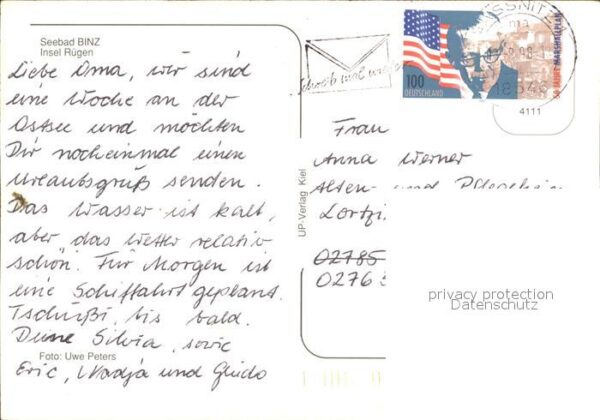 Seebad BINZ
Insel Rügen
Liebe Oma, wir sind
eine Woche an der
Ostsee und möchten
Dir nocheinmal einen
Urlaubsgruß senden.
Das Wasser ist kalt,
aber das Wetter relativ
schön. Für Morgen ist
eine Schiffahrt geplant.
Tschüßi, bis bald.
Deine Silvia, sowie
Foto: Uwe Peters
Eric, Nadja und Guido
UP-Verlag Kiel
Schreib mal wieder
100
DEUTSCHLAND
50 JAHRE MARSHALLPLAN
18546
4111
Frau
Anna Werner
Alten- und Pflegeheim
Lortzi
02785
0276
privacy protection
Datenschutz